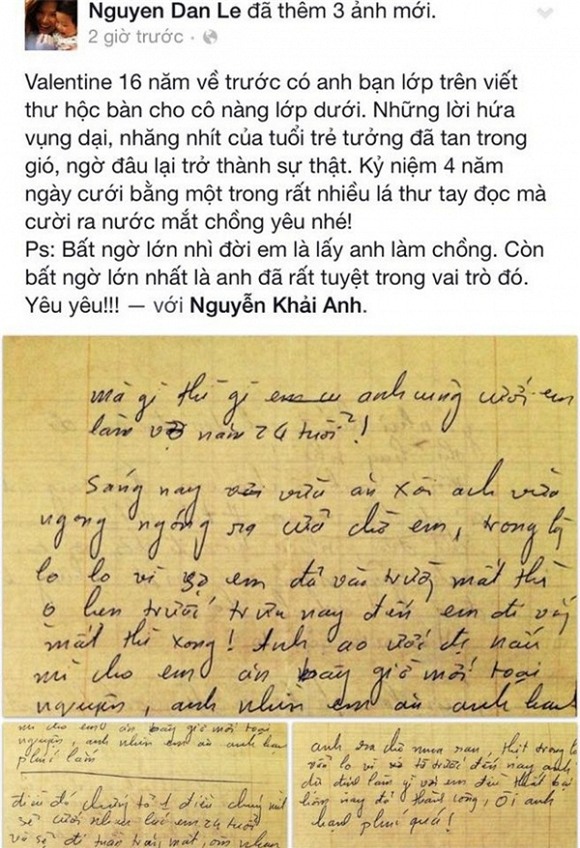 Nguyen Dan Le đã thêm 3 ảnh mới.
2 giờ trước ·
Valentine 16 năm về trước có anh bạn lớp trên viết
thư hộc bàn cho cô nàng lớp dưới. Những lời hứa
vụng dại, nhăng nhít của tuổi trẻ tưởng đã tan trong
gió, ngờ đâu lại trở thành sự thật. Kỷ niệm 4 năm
ngày cưới bằng một trong rất nhiều lá thư tay đọc mà
cười ra nước mắt chồng yêu nhé!
Ps: Bất ngờ lớn nhì đời em là lấy anh làm chồng. Còn
bất ngờ lớn nhất là anh đã rất tuyệt trong vai trò đó.
Yêu yêu!!! — với Nguyễn Khải Anh.
mà gì thì gì anh cũng cưới em
làm vợ năm 24 tuổi!
Sáng nay vừa ăn xôi anh vừa
ngong ngóng ra cửa chờ em, trong
lo lo vì sợ em đã vào trường mất thì
trưa nay đến em đi
mất thì xong! Anh ao ước đi nấu
mì cho em ăn bây giờ mới toại
nguyện, anh nhìn em ăn anh
mì cho em ăn bây giờ mới toại
nguyện, anh nhìn em ăn anh
phúc lắm
điều đó chứng tỏ 1 điều
sẽ cưới nhau lúc em 24 tuổi
anh
lo
làm gì với em đều thất bại
hôm nay đã thành công, Ôi anh
hạnh phúc quá!